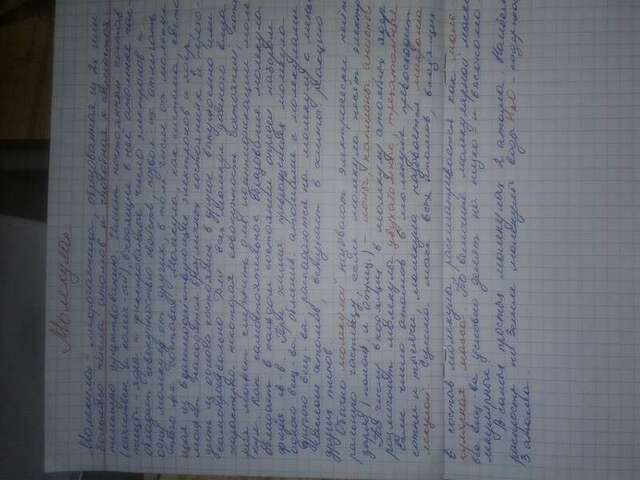 Молекула
Молекула - микрочастица, образованная из 2х или
большего числа атомов и способная к самостоя
тельному существованию. Имеет постоянный состав
(качествен. и колич-ый), входящих в неё атомных
ядер и фиксированное число электронов и
обладает совокупностью свойств, позвол-их отличать
одну молекулу от других, в том числе от молекул
того же состава. Молекула, как система, состо
ящая из взаимодействующих электронов и ядер,
может находиться в различных состояниях и перехо
дить из одного состояния в другое вынужденно или
самопроизвольно. Для всех молекул данного вида
характерна некоторая совокупность состояний, кото
рая может служить для идентификации моле
кул. Как самостоятельное образование молекула
обладает в каждом состоянии определ набором
физ св-в. При химич превращениях молекула
одного вещ-ва, обменив. атомами с молекулами
другого вещ-ва распадаются на молекулы с мень
числом атомов, вступает в химич реакцию
других типов.
Обычно молекулой называют электрически нейт
ральную частицу, если молекула несёт электр
заряд (полож. и отриц.) - ионы катионы анионы
По числу входящих в молекулу атомных ядер
различают молекулы двухатомные трехатомные.
Если число атомов в молекуле превосходит
сотни и тысячи, молекула называется макромо
лекулой. Сумма масс всех атомов, входящих
в состав молекулы, рассматривается как моле
кулярная масса. По величине молекулярной массы
все вещ-ва условно делят на низко и высокомо
лекулярные.
В самых простых молекулах 2 атома. Наибол
распростр на Земле молекулы воды H2O - содержат
3 атома.